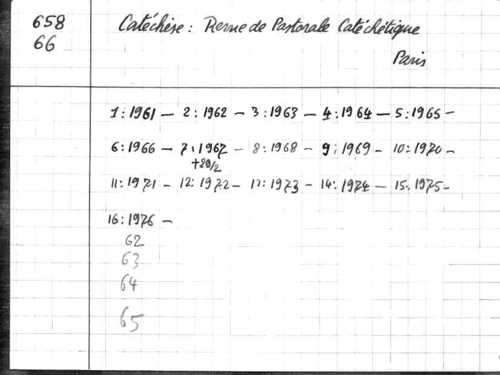 658
66
Catéchèse : Revue de Pastorale Catéchétique
Paris
1 : 1961 – 2 : 1962 – 3 : 1963 – 4 : 1964 – 5 : 1965 –
6 : 1966 – 7 : 1967 – 8 : 1968 – 9 : 1969 – 10 : 1970 –
11 : 1971 – 12 : 1972 – 13 : 1973 – 14 : 1974 – 15 : 1975 –
16 : 1976 –
62
63
64
65